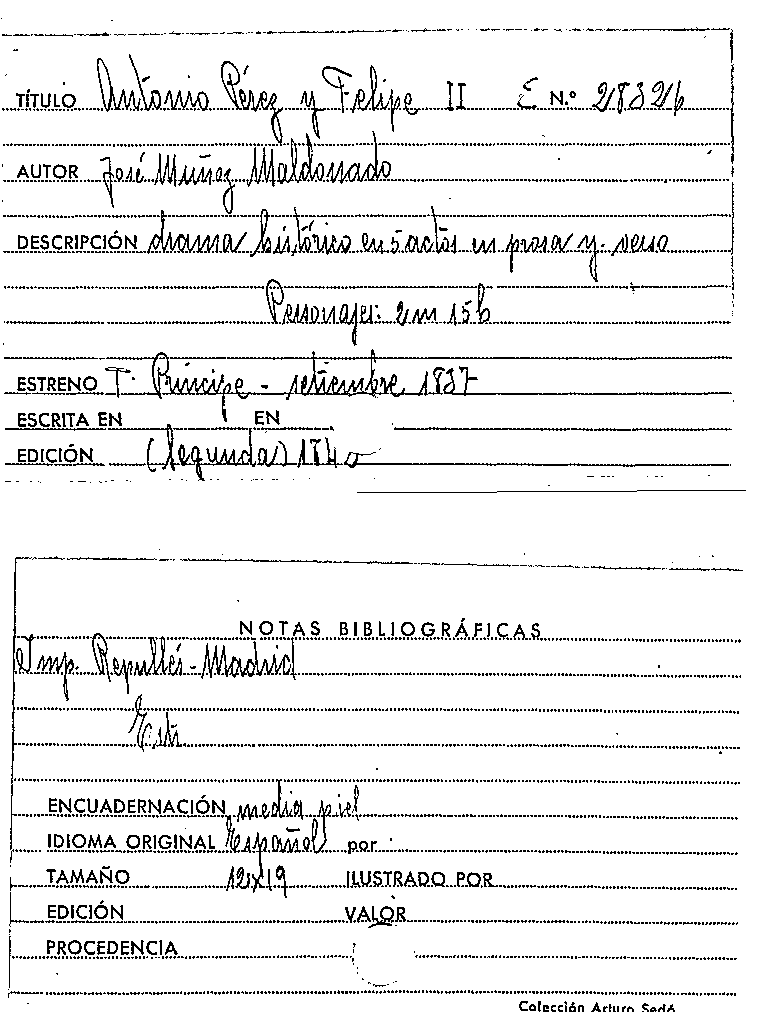 TÍTULO Antonio Pérez y Felipe II E N.º 28326
AUTOR José Muñoz Maldonado
DESCRIPCIÓN drama histórico en 5 actos en prosa y verso
Personajes: 2m 15h
ESTRENO T. Príncipe - setiembre 1837
ESCRITA EN EN
EDICIÓN (Segunda) 1840
NOTAS BIBLIOGRÁFICAS
Imp. Repullés - Madrid
ENCUADERNACIÓN media piel
IDIOMA ORIGINAL Español por
TAMAÑO 12x19 ILUSTRADO POR
EDICIÓN VALOR
PROCEDENCIA
Colección Arturo Sedó